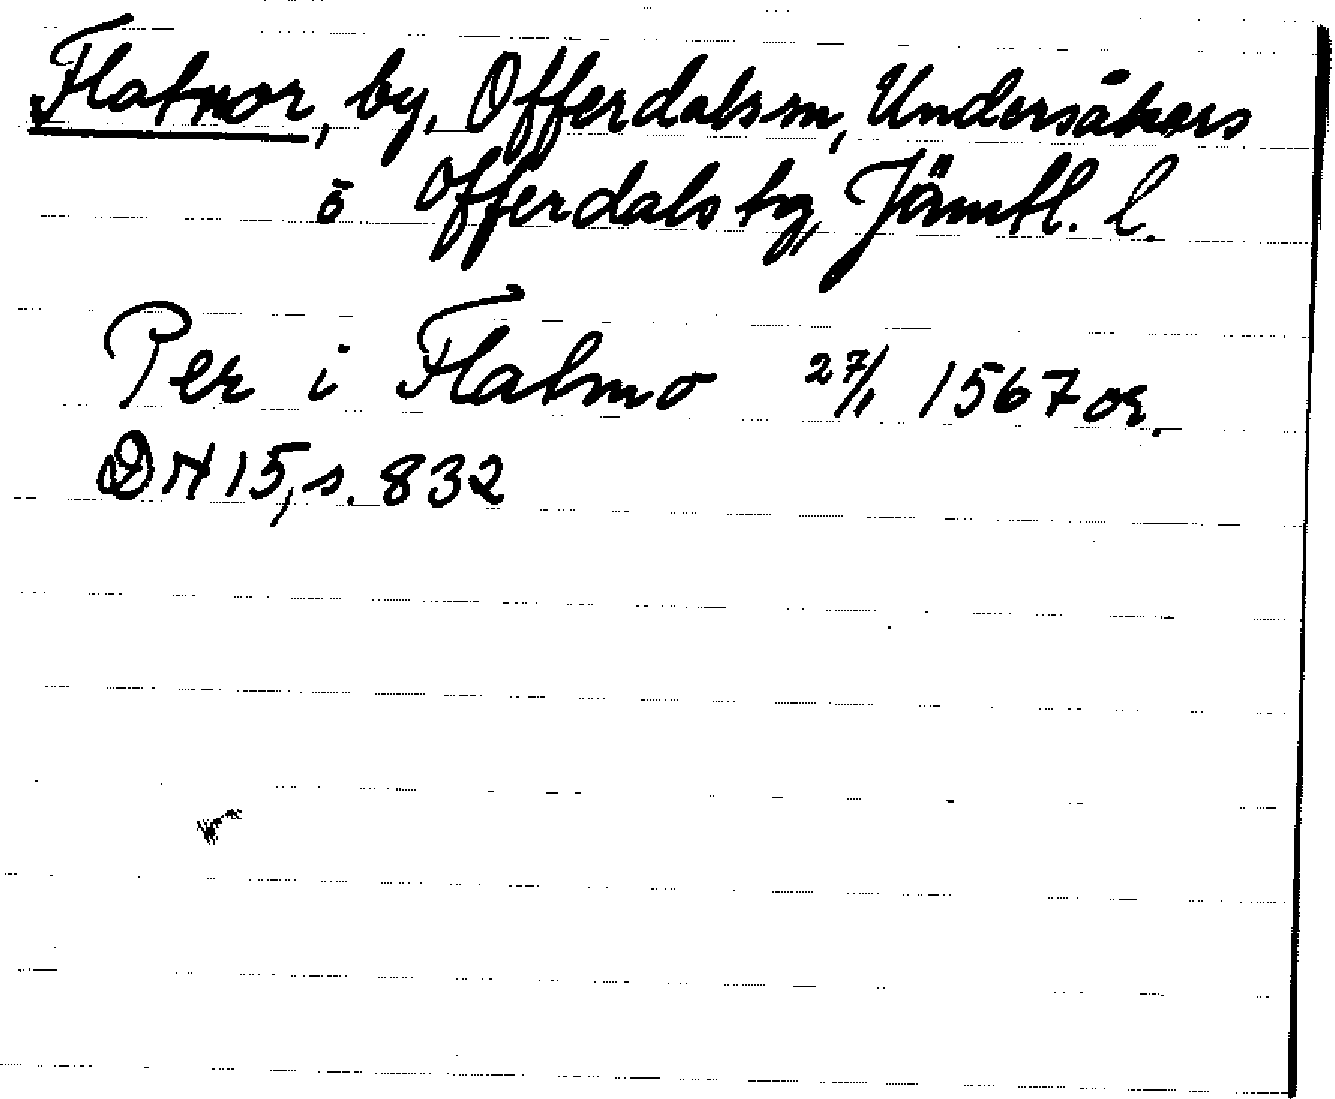 Flatnor, by, Offerdals sn, Undersåkers
o Offerdals tg, Jämtl. l.
Per i Flatmo 27/1 1567 or.
DN 15, s. 832